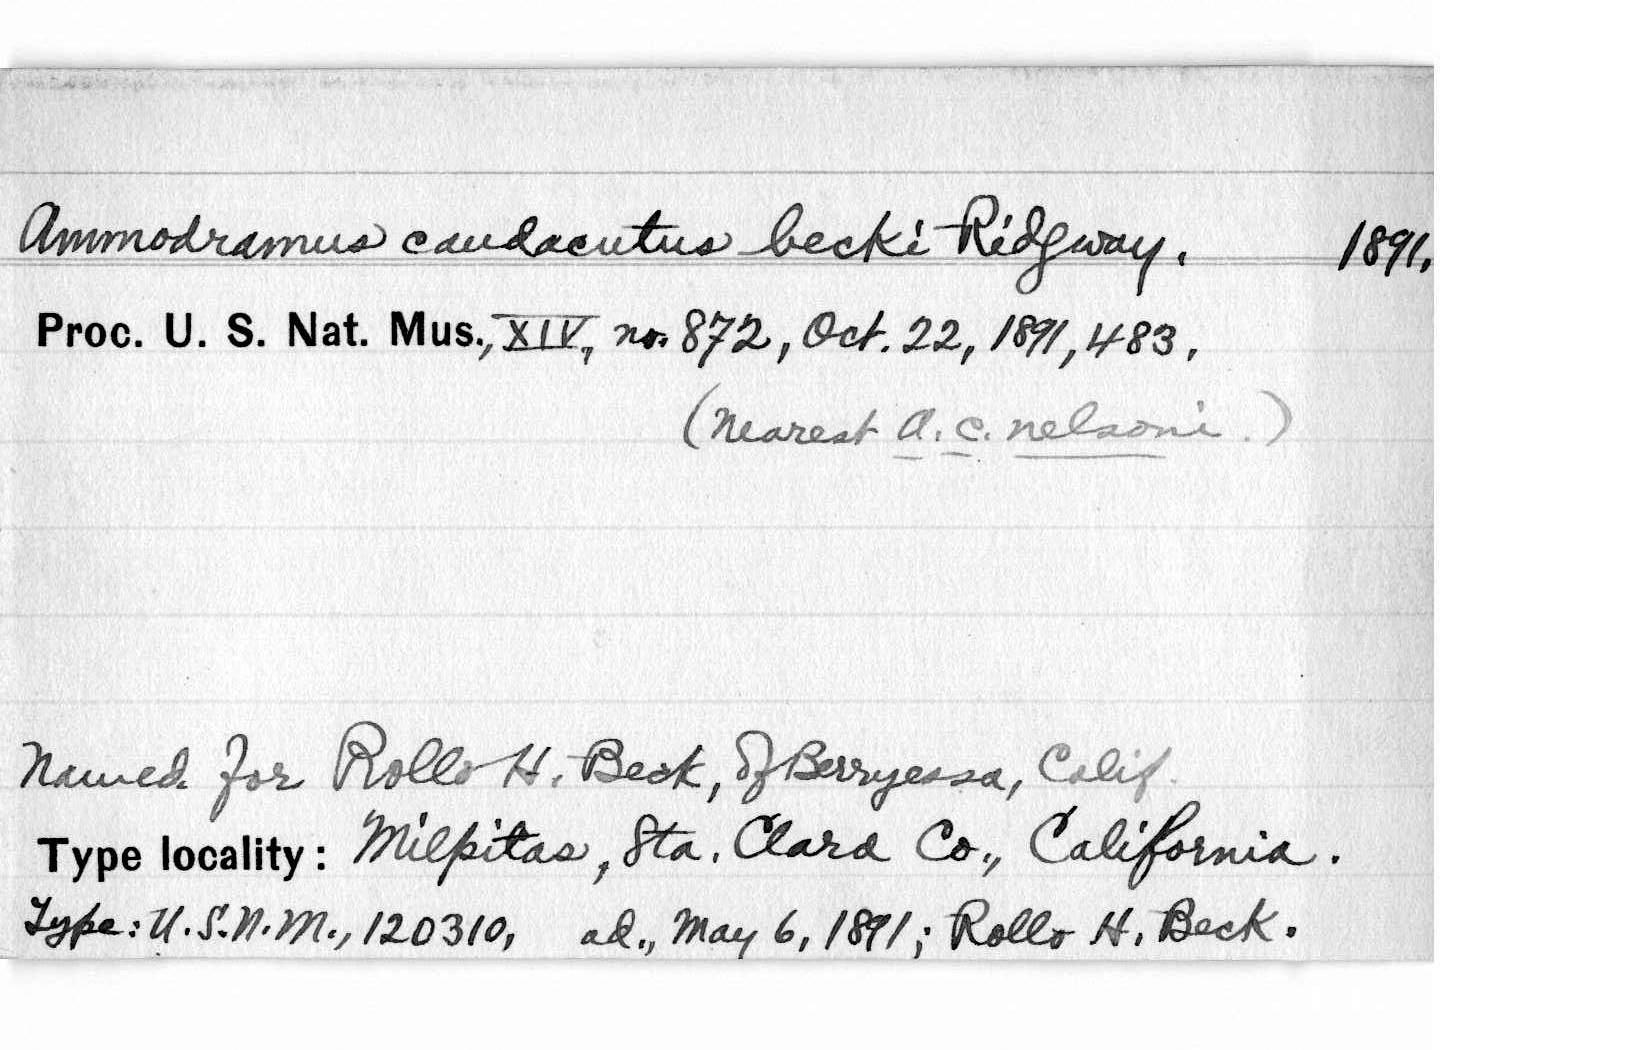 Ammodramus caudacutus becki Ridgway. 1891.
Proc. U. S. Nat. Mus., XIV, no. 872, Oct. 22, 1891, 483.
(Nearest A. c. nelsoni.)
Named for Rollo H. Beck, of Berryessa, Calif.
Type locality: Milpitas, Sta. Clara Co., California.
Type: U.S.N.M., 120310, ad., May 6, 1891; Rollo H. Beck.